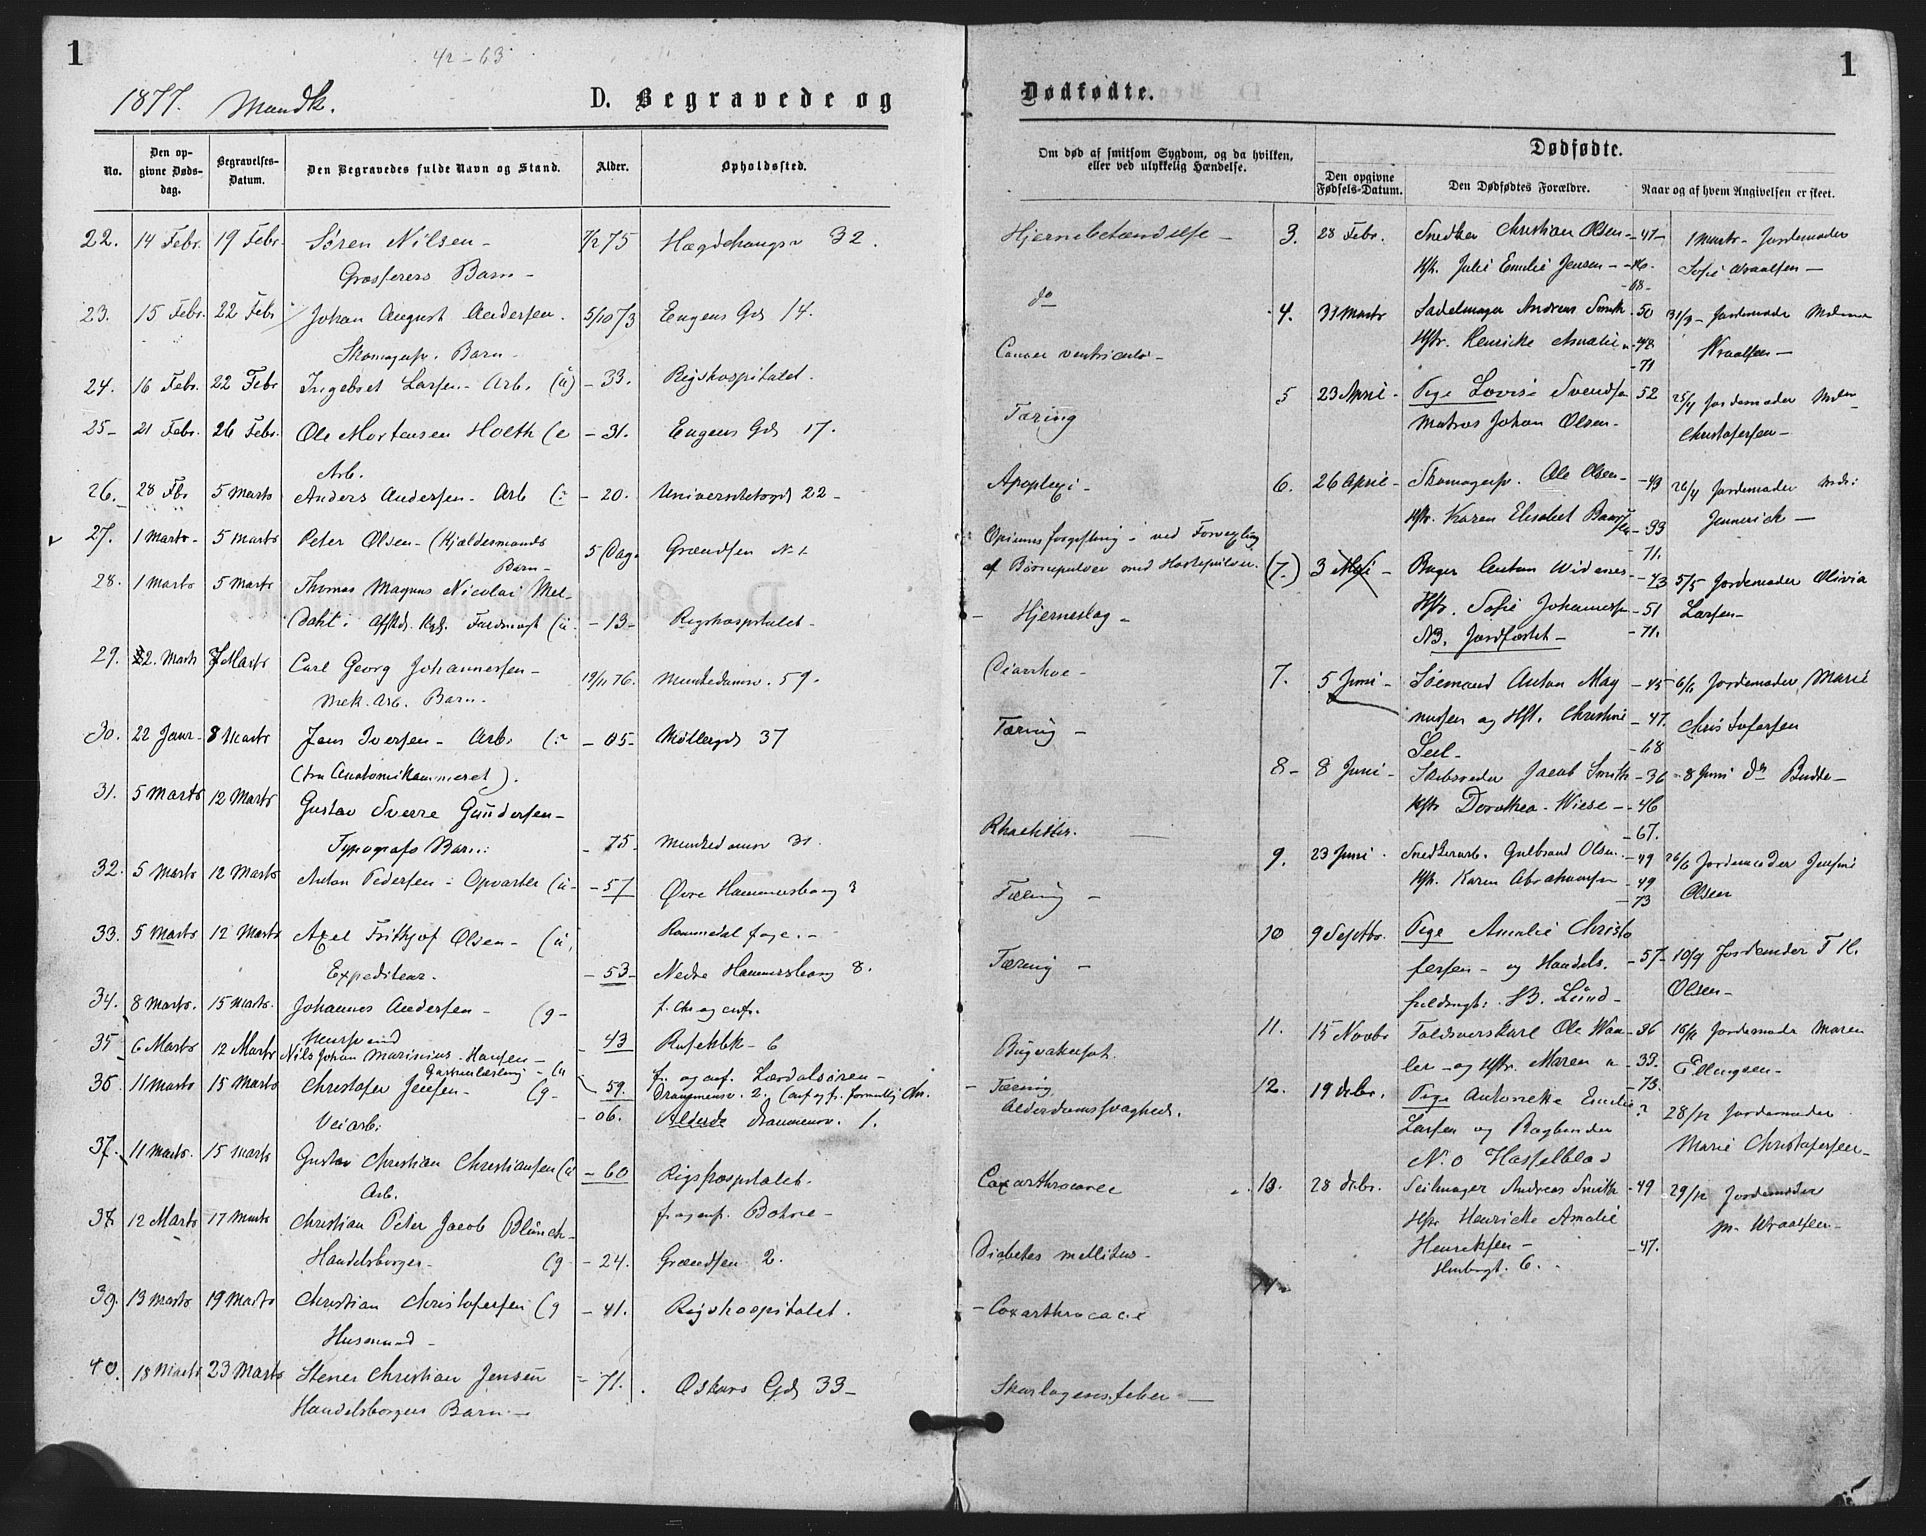 1
42-63
1877. Mandk.
D. Begravede og
No.
Den op-
givne Døds-
dag.
Begravelses-
Datum.
Den Begravedes fulde Navn og Stand.
Alder.
Opholdssted.
22. 14 Febr. 19 Febr. Søren Nilsen - 7/2 75 Hægdehaugsv 32.
Grosserers Barn -
23. 15 Febr. 22 Febr Johan August Andersen. 5/10 73 Eugens Gd 14.
Skomagersv. Barn -
24. 16 Febr. 22 Febr Ingebret Larsen - Arb. (ü) - 33. Rigshospitalet.
25- 21 Febr. 26 Febr. Ole Mortensen Holth (e - 31. Eugens Gd 17.
Arb.
26. 28 Fb 5 Marts Anders Andersen - Arb (: - 20. Universitetsgd 22-
27. 1 Marts - 5 Marts Peter Olsen - (Kjældermands 5 Dag. Grændsen No 1
Barn -
28. 1 Marts 5 Marts Thomas Magnus Nicolai Mel
Dahl: Afskd. (ü. - 13 - Rigshospitalet -
29. 22. Marts 7 Marts Carl Georg Johannessen - 19/11 76. Munkedamsv. 59.
Mek. Arb. Barn -
30. 22 Janr - 8 Marts Jens Iversen - Arb: (: - 05 - Møllergd 37
(fra Anatomikammeret).
31. 5 Marts 12 Marts Gustav Sverre Gundersen -
Typografs Barn: - 75 - Munkedamsv 31.
32. 5 Marts 12 Marts Anton Pedersen - Opvarter (ü - - 57 Øvre Hammersborg 3
33. 5 Marts 12 Marts Axel Frithjof Olsen - (ü,
Expeditear. - 53 - Nedre Hammersborg 8.
34. 8 Marts. 15 Marts. Johannes Andersen - (g - f. Chr og anf.
Huusmand - 43 Rusekbk - 6
35 6 Marts 12 Marts Nils Johan Marinius Hansen -
Gartnerlærling - (ü 59. f. og anf. Lærdalsøren -
36 11 Marts 15 Marts Christofer Jensen - (g - Drammensv. 2.
Veiarb: - 06. Drammensv. 1.
37. 11 Marts. 15 Marts Gustav Christian Christiansen (ü - 60 Rigshospitalet.
Arb. f. og anf. Botne -
37 12 Marts 17 Marts Christian Peter Jacob Blünck -
Handelsborger - (g - 24. Grændsen 2.
39. 13 Marts 19 Marts Christian Christofersen (g - 41. Rigshospitalet.
Husmand -
40. 18 Marts 23 Marts Stener Christian Jensen - 71. Oskars Gd 33 -
Handelsborgers Barn -
1
Dødfødte.
Om død af smitsom Sygdom, og da hvilken,
eller ved ulykkelig Hændelse.
Dødfødte.
Den opgivne
Fødsels-Datum.
Den Dødfødtes Forældre.
Naar og af hvem Angivelsen er skeet.
Hjernebetændelse -
do
Cancer ventriculi -
Tæring
Apoplexi -
Opiumsforgiftning - ved Forvexling
af Børnepulver med Hostepulver.
- Hjerneslag -
Diarrhoe -
Tæring -
Rhachitis.
Tæring -
Tæring -
Bugvatersot.
- Tæring
Alderdomssvaghed.
Coxarthrocace
Diabetes mellitus -
- Coxarthrocace
Skarlagensfeber -
3. 28 Febr. Snedker Christian Olsen - 47 - 1 Marts - Jordemoder
Hst. Julie Emilie Jensen - - 46. Sofie Wraalsen -
- 68 -
4. 31 Marts Sadelmager Andreas Smith - 50 31/3 - Jordemoder
Hstr. Henrikke Amalie - 48 Wraalsen -
- 71
5 23 April - Pige Lovise Svendsen 52 25/4 Jordemoder
Matros Johan Olsen - Christofersen -
6. 26 April - Skomagersv. Ole Olsen - - 49 26/4 Jordemoder
Hst. Karen Elisabet - 33 Jennerich -
- 71.
(7.) 3 Mai - Bager Anton - 43 5/5 Jordemoder Olivia
Hst. Sofie Johannessen - 51 Larsen -
NB. Jordfæstet - - 71.
7. 5 Juni - Sømand Anton Mag - 45 6/6 Jordemoder Marie
nussen og Hst. Christine - 47. Christofersen
- 68
8 - 8 Juni - Skibsreder Jacob Smith - 36 - 8 Juni Budde -
Hst Dorothea Wiese - - 46
- 67.
9. 23 Juni. Snedkerarb. Gulbrand Olsen - 49 26/6 Jordemoder
Hst. Karen Abrahamsen - 49 Olsen
- 73
10 9 Septbr. Pige Amalie Christo
fersen - og Handels. - 57 - 10/9 Jordemoder T H.
fuldmgt: H. B. Lund - Olsen -
11. 15 Novbr Toldoverskarl Ole Waa - 36 16/11 Jordemoder Maren
ler - og Hst. Maren - 33. Ellingsen -
- 73.
12. 19 Debr. Pige Antonette Emilie ? 28/12 Jordemoder
Larsen og Bogbinder Marie Christofersen -
N. O Hasselblad
13. 28 Debr. Seilmager Andreas Smith - 49 29/12 Jordemoder
Hst Henrikke Amalie M. Wraalsen -
Henriksen - - 47.
6.
14